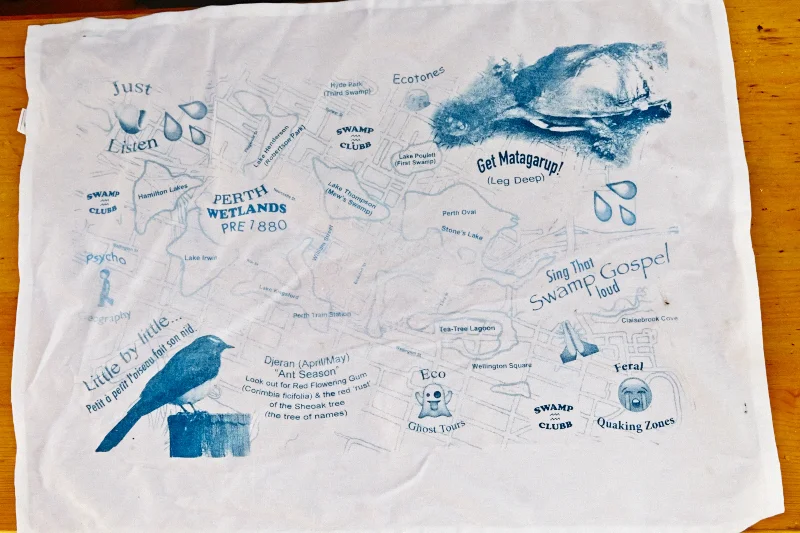 Just
Listen
Hyde Park
(Third Swamp)
Ecotones
Lake Henderson
(Robertson Park)
SWAMP
CLUBB
Lake Poulett
(First Swamp)
Get Matagarup!
(Leg Deep)
SWAMP
CLUBB
Hamilton Lakes
PERTH
WETLANDS
PRE 1880
Lake Thompson
(Mew's Swamp)
Perth Oval
Stone's Lake
William Street
Lake Irwin
Psycho
eography
Lake Kingsford
Perth Train Station
Sing That
Swamp Gospel
loud
Claisebrook Cove
Tea-Tree Lagoon
Wellington Square
Little by little...
Petit à petit l'oiseau fait son nid.
Djeran (April/May)
"Ant Season"
Look out for Red Flowering Gum
(Corimbia ficifolia) & the red 'rust'
of the Sheoak tree
(the tree of names)
Eco
Ghost Tours
SWAMP
CLUBB
Feral
Quaking Zones